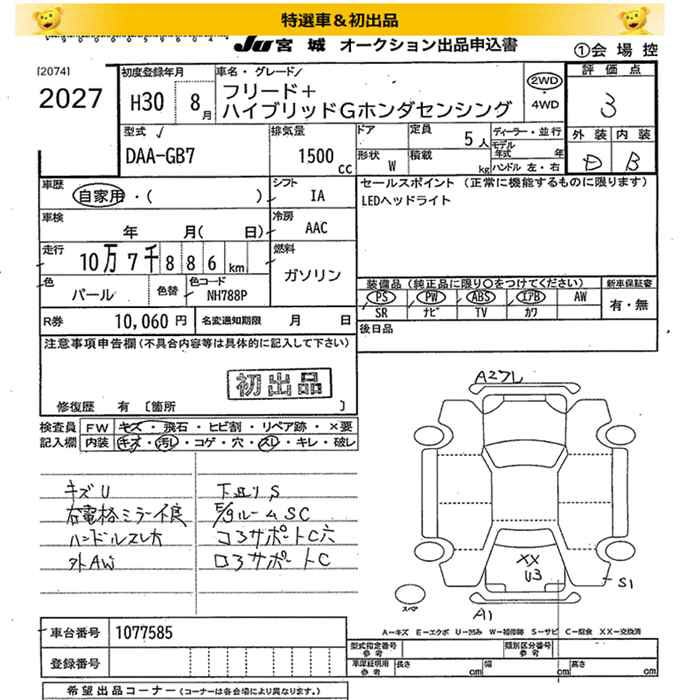 特選車＆初出品
JU宮城 オークション出品申込書
①会場控
[2074]
2027
初度登録年月
H30 8月
車名・グレード
フリード＋
ハイブリッドGホンダセンシング
2WD・4WD
評価点
3
外装 内装
D B
型式
DAA-GB7
排気量
1500cc
ドア
形状 W
定員 5人
積載 kg
ディーラー・並行
モデル年式 年
ハンドル 左・右
車歴
自家用・( )
シフト
IA
セールスポイント (正常に機能するものに限ります)
LEDヘッドライト
車検
年 月( 日)
冷房
AAC
走行
10万7千886km
燃料
ガソリン
色
パール
色替
色コード
NH788P
装備品 (純正品に限り○をつけてください)
新車保証書
PS PW ABS エアB AW
SR ナビ TV カワ
有・無
R券 10,060円
名変通知期限 月 日
後日品
注意事項申告欄(不具合内容等は具体的に記入して下さい)
初出品
修復歴 有 〔箇所 〕
検査員記入欄
FW キズ・飛石・ヒビ割・リペア跡・×要
内装 キズ・汚レ・コゲ・穴・スレ・キレ・破レ
キズU
右電格ミラー不良
ハンドルスレ大
外AW
下廻りS
E/gルームSC
コアサポートC穴
コアサポートC
A27L
XX
U3
S1
A1
スペア
A－キズ E－エクボ U－凹み W－補修跡 S－サビ C－腐食 XX－交換済
車台番号 1077585
登録番号
型式指定番号 参考
類別区分番号 参考
車庫証明用 参考
長さ cm
幅 cm
高さ cm
希望出品コーナー (コーナーは各会場により異なります。)